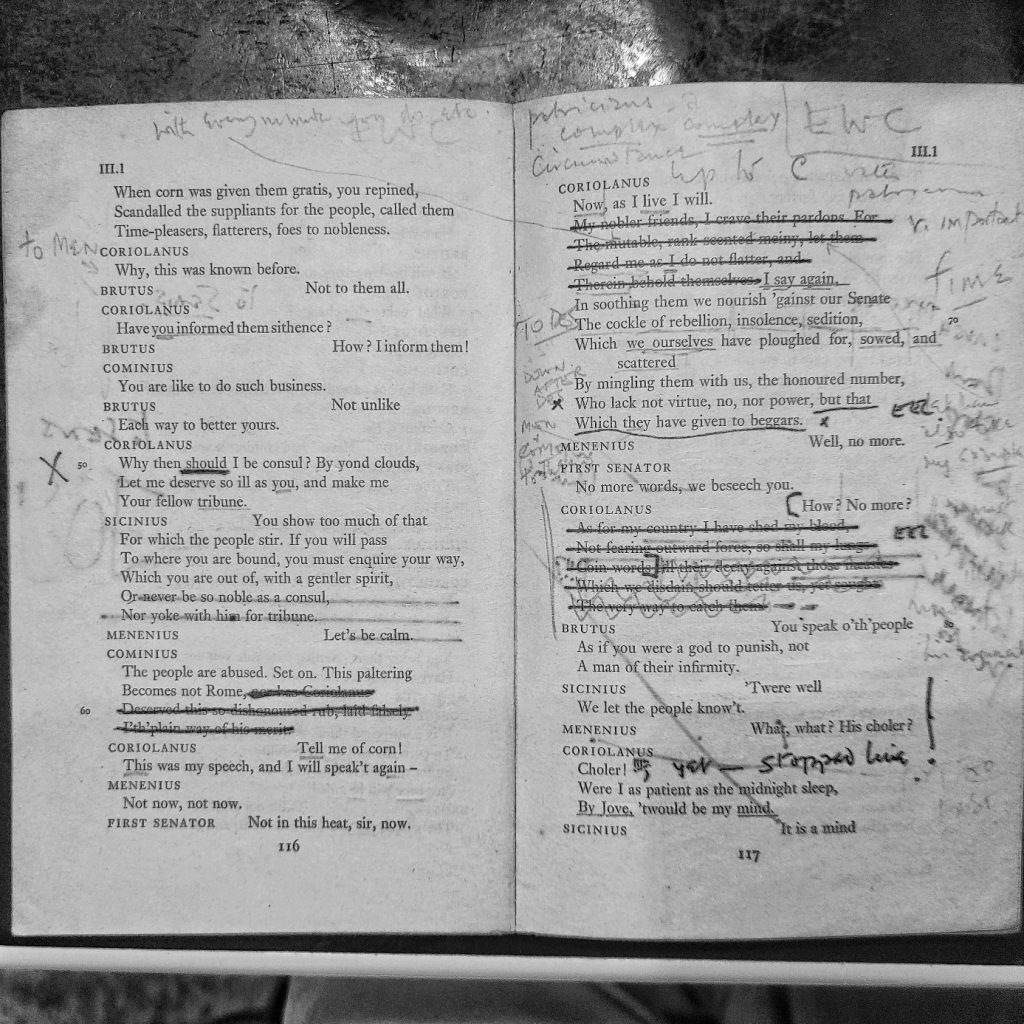 with every minute you do, etc.
III.1
When corn was given them gratis, you repined,
Scandalled the suppliants for the people, called them
Time-pleasers, flatterers, foes to nobleness.
to MEN
CORIOLANUS
Why, this was known before.
BRUTUS Not to them all.
CORIOLANUS
Have you informed them sithence?
BRUTUS How? I inform them!
COMINIUS
You are like to do such business.
BRUTUS Not unlike
Each way to better yours.
CORIOLANUS
X 50 Why then should I be consul? By yond clouds,
Let me deserve so ill as you, and make me
Your fellow tribune.
SICINIUS You show too much of that
For which the people stir. If you will pass
To where you are bound, you must enquire your way,
Which you are out of, with a gentler spirit,
Or never be so noble as a consul,
Nor yoke with him for tribune.
MENENIUS Let's be calm.
COMINIUS
The people are abused. Set on. This paltering
Becomes not Rome, nor has Coriolanus
60 Deserved this so dishonoured rub, laid falsely
I'th'plain way of his merit.
CORIOLANUS Tell me of corn!
This was my speech, and I will speak't again –
MENENIUS
Not now, not now.
FIRST SENATOR Not in this heat, sir, now.
116
patricians
complex complex
EWC
Circumstance
up to C
patricians
v. important
TIME
III.1
CORIOLANUS
Now, as I live I will.
My nobler friends, I crave their pardons. For
The mutable, rank-scented meiny, let them
Regard me as I do not flatter, and
Therein behold themselves. I say again,
In soothing them we nourish 'gainst our Senate
TO DS
The cockle of rebellion, insolence, sedition, 70
Which we ourselves have ploughed for, sowed, and
scattered
DOWN
AFTER
By mingling them with us, the honoured number,
x Who lack not virtue, no, nor power, but that EEL
Which they have given to beggars. x
MEN
MENENIUS Well, no more.
FIRST SENATOR
No more words, we beseech you.
CORIOLANUS How? No more?
As for my country I have shed my blood,
Not fearing outward force, so shall my lungs EEL
Coin words till their decay against those measles
Which we disdain should tetter us, yet sought
The very way to catch them.
BRUTUS You speak o'th'people 80
As if you were a god to punish, not
A man of their infirmity.
SICINIUS 'Twere well
We let the people know't.
MENENIUS What, what? His choler?
CORIOLANUS
Choler! yet — stopped line
Were I as patient as the midnight sleep,
By Jove, 'twould be my mind.
SICINIUS It is a mind
117